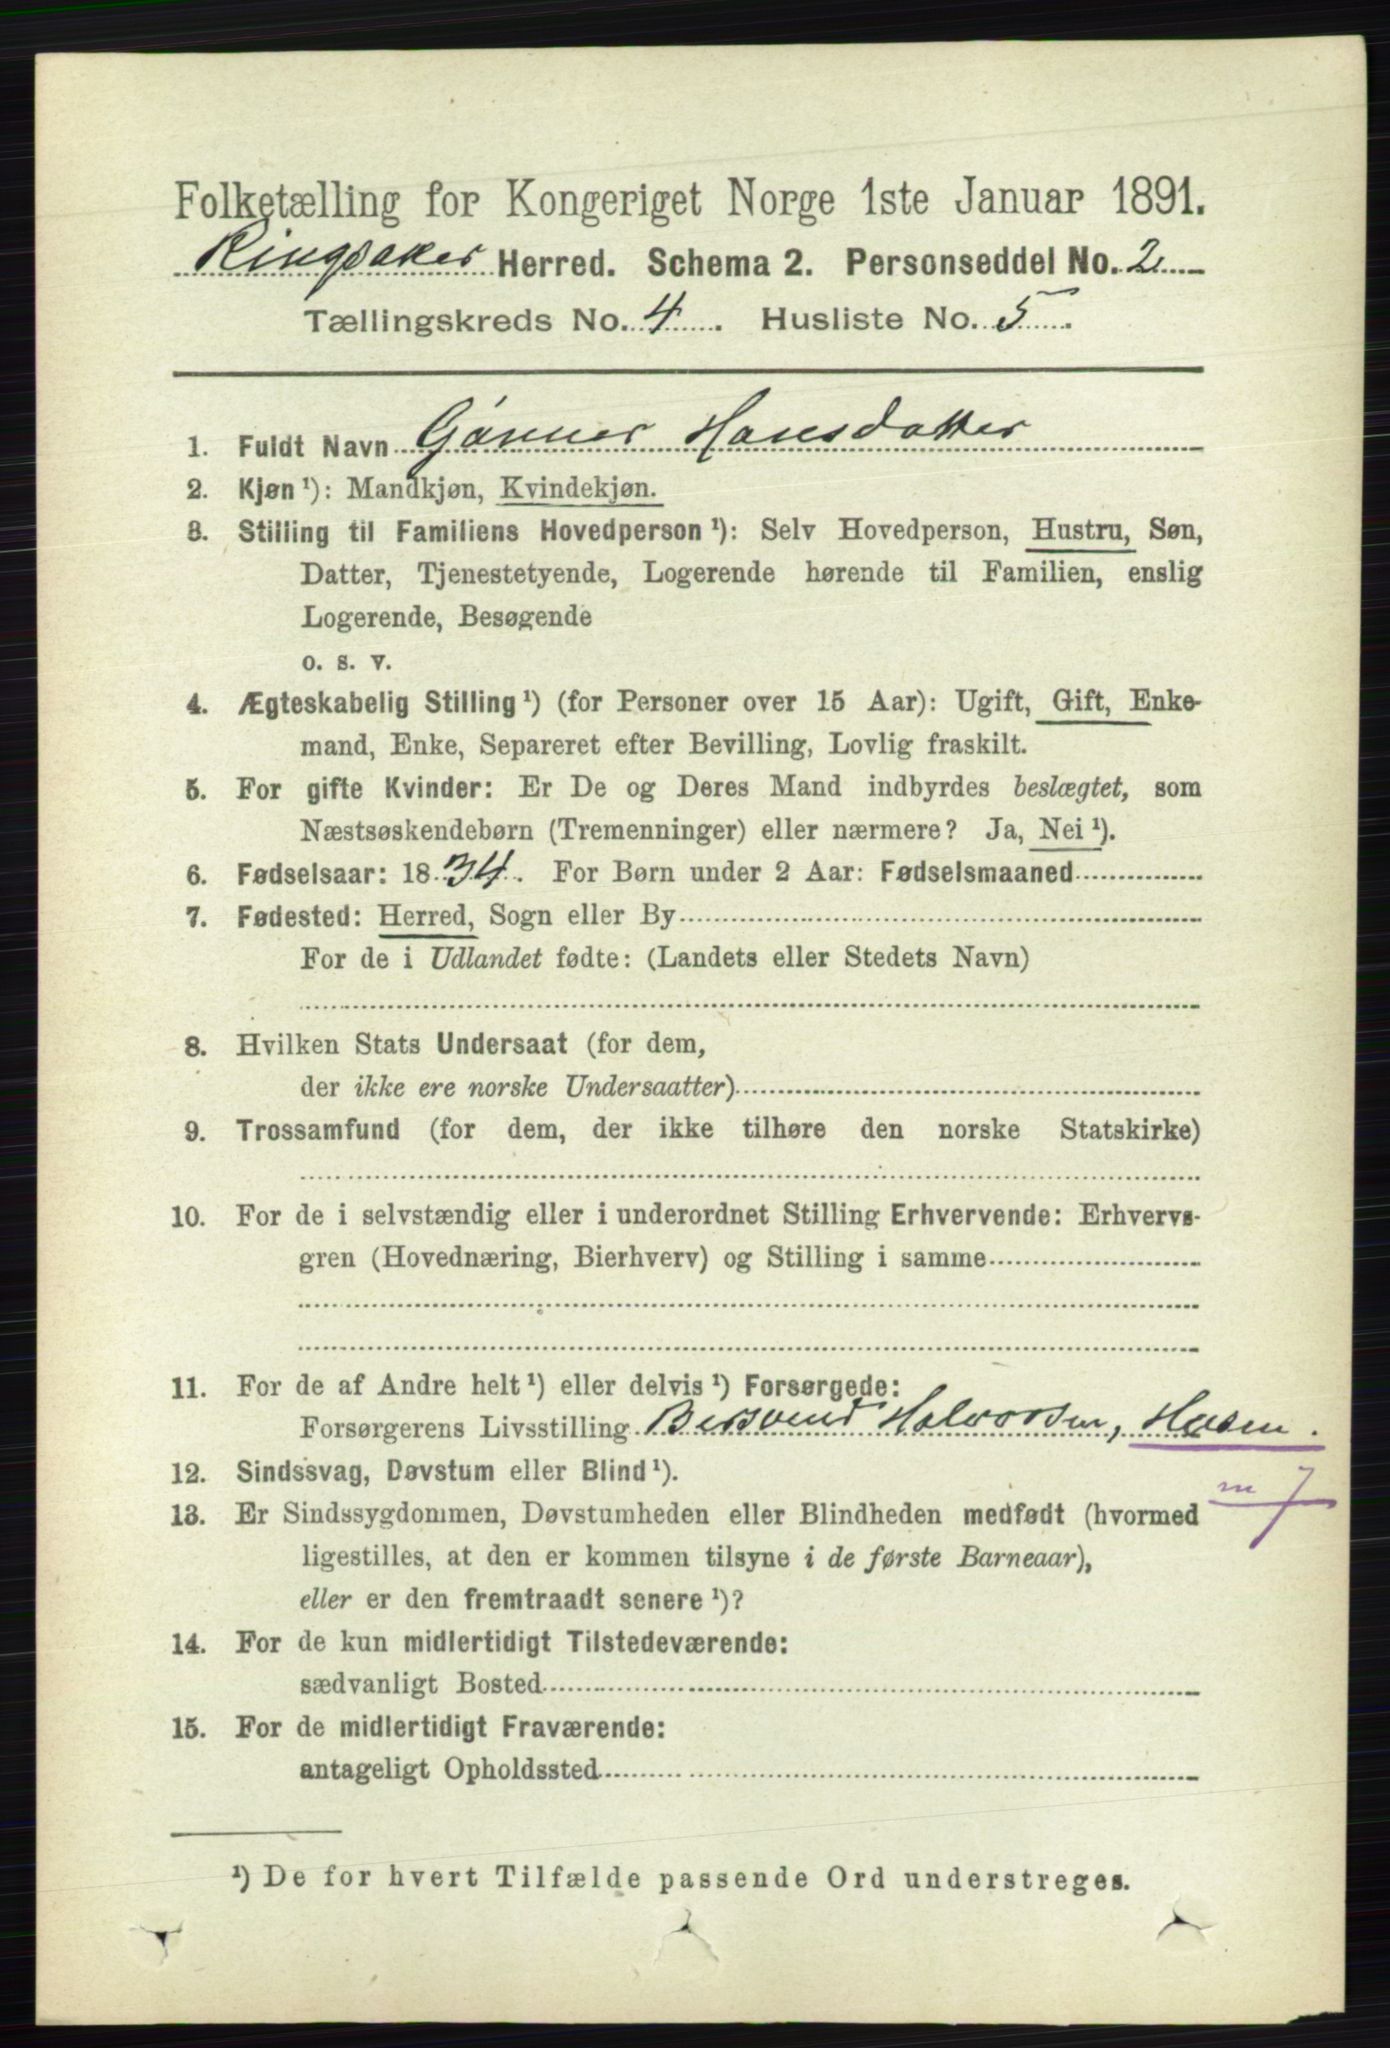 Folketælling for Kongeriget Norge 1ste Januar 1891.
Ringsaker Herred. Schema 2. Personseddel No. 2
Tællingskreds No. 4. Husliste No. 5.
1. Fuldt Navn Gunner Hansdatter
2. Kjøn ¹): Mandkjøn, Kvindekjøn.
3. Stilling til Familiens Hovedperson ¹): Selv Hovedperson, Hustru, Søn,
Datter, Tjenestetyende, Logerende hørende til Familien, enslig
Logerende, Besøgende
o. s. v.
4. Ægteskabelig Stilling ¹) (for Personer over 15 Aar): Ugift, Gift, Enke-
mand, Enke, Separeret efter Bevilling, Lovlig fraskilt.
5. For gifte Kvinder: Er De og Deres Mand indbyrdes beslægtet, som
Næstsøskendebørn (Tremenninger) eller nærmere? Ja, Nei ¹).
6. Fødselsaar: 1834. For Børn under 2 Aar: Fødselsmaaned
7. Fødested: Herred, Sogn eller By
For de i Udlandet fødte: (Landets eller Stedets Navn)
8. Hvilken Stats Undersaat (for dem,
der ikke ere norske Undersaatter)
9. Trossamfund (for dem, der ikke tilhøre den norske Statskirke)
10. For de i selvstændig eller i underordnet Stilling Erhvervende: Erhvervs-
gren (Hovednæring, Bierhverv) og Stilling i samme
11. For de af Andre helt ¹) eller delvis ¹) Forsørgede:
Forsørgerens Livsstilling Bersvend Halvorsen,
m 7
12. Sindssvag, Døvstum eller Blind ¹).
13. Er Sindssygdommen, Døvstumheden eller Blindheden medfødt (hvormed
ligestilles, at den er kommen tilsyne i de første Barneaar),
eller er den fremtraadt senere ¹)?
14. For de kun midlertidigt Tilstedeværende:
sædvanligt Bosted
15. For de midlertidigt Fraværende:
antageligt Opholdssted
¹) De for hvert Tilfælde passende Ord understreges.